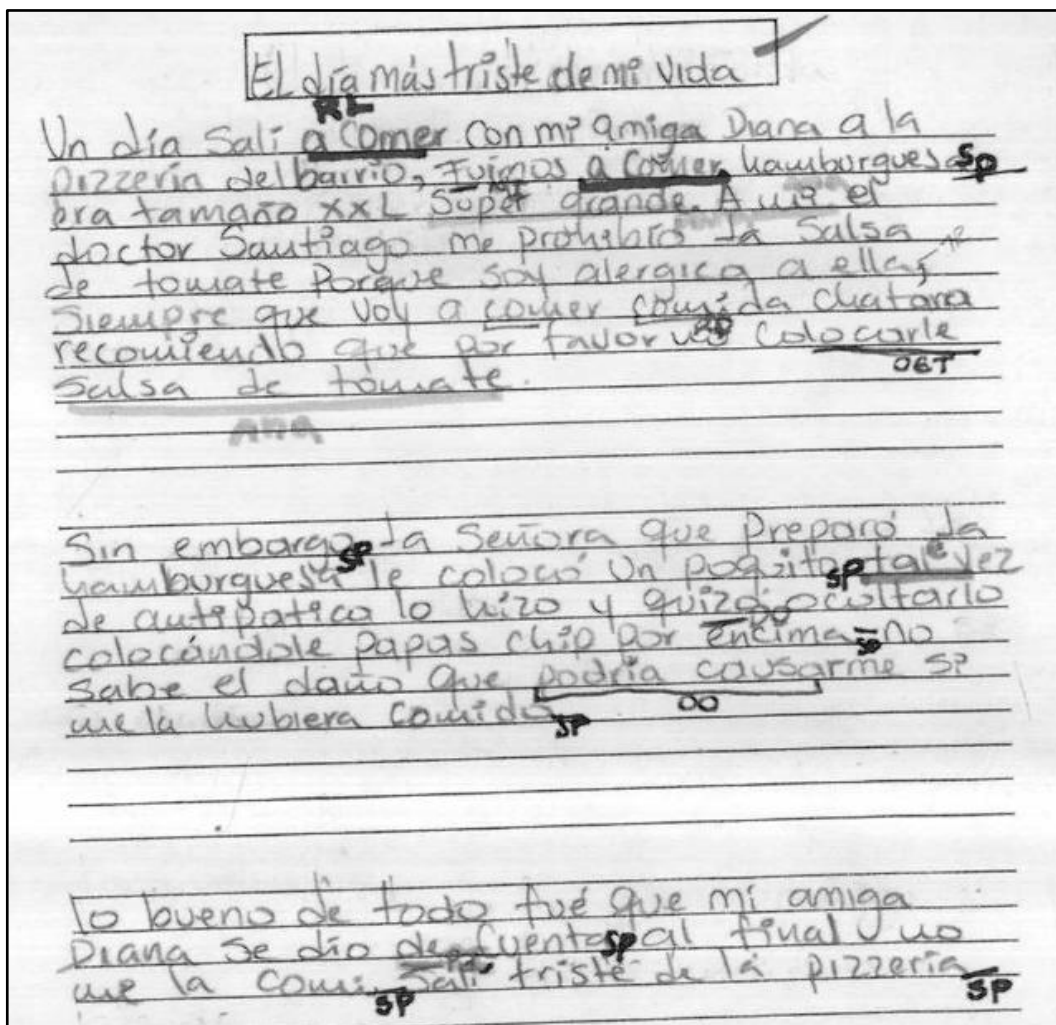 El día más triste de mi vida
RL
Un día Salí a comer con mi amiga Diana a la
pizzería del barrio, Fuimos a comer hamburguesa SP
era tamaño XXL Súper grande. A mi el
doctor Santiago me prohibió la Salsa
de tomate Porque soy alergica a ella,
Siempre que voy a comer comida chatarra
recomiendo que por favor no Colocarle
OET
Salsa de tomate.
ANA
Sin embargo SP la Señora que Preparó la
hamburguesa le colocó Un poquito SP tal vez
de antipatica lo hizo y quizo ocultarlo
colocándole papas chip por encima SP no
sabe el daño que podría causarme si
OO
me la hubiera comido SP
lo bueno de todo fué que mi amiga
Diana Se dio de cuenta SP al final no
me la comí SP Salí triste de la pizzería SP